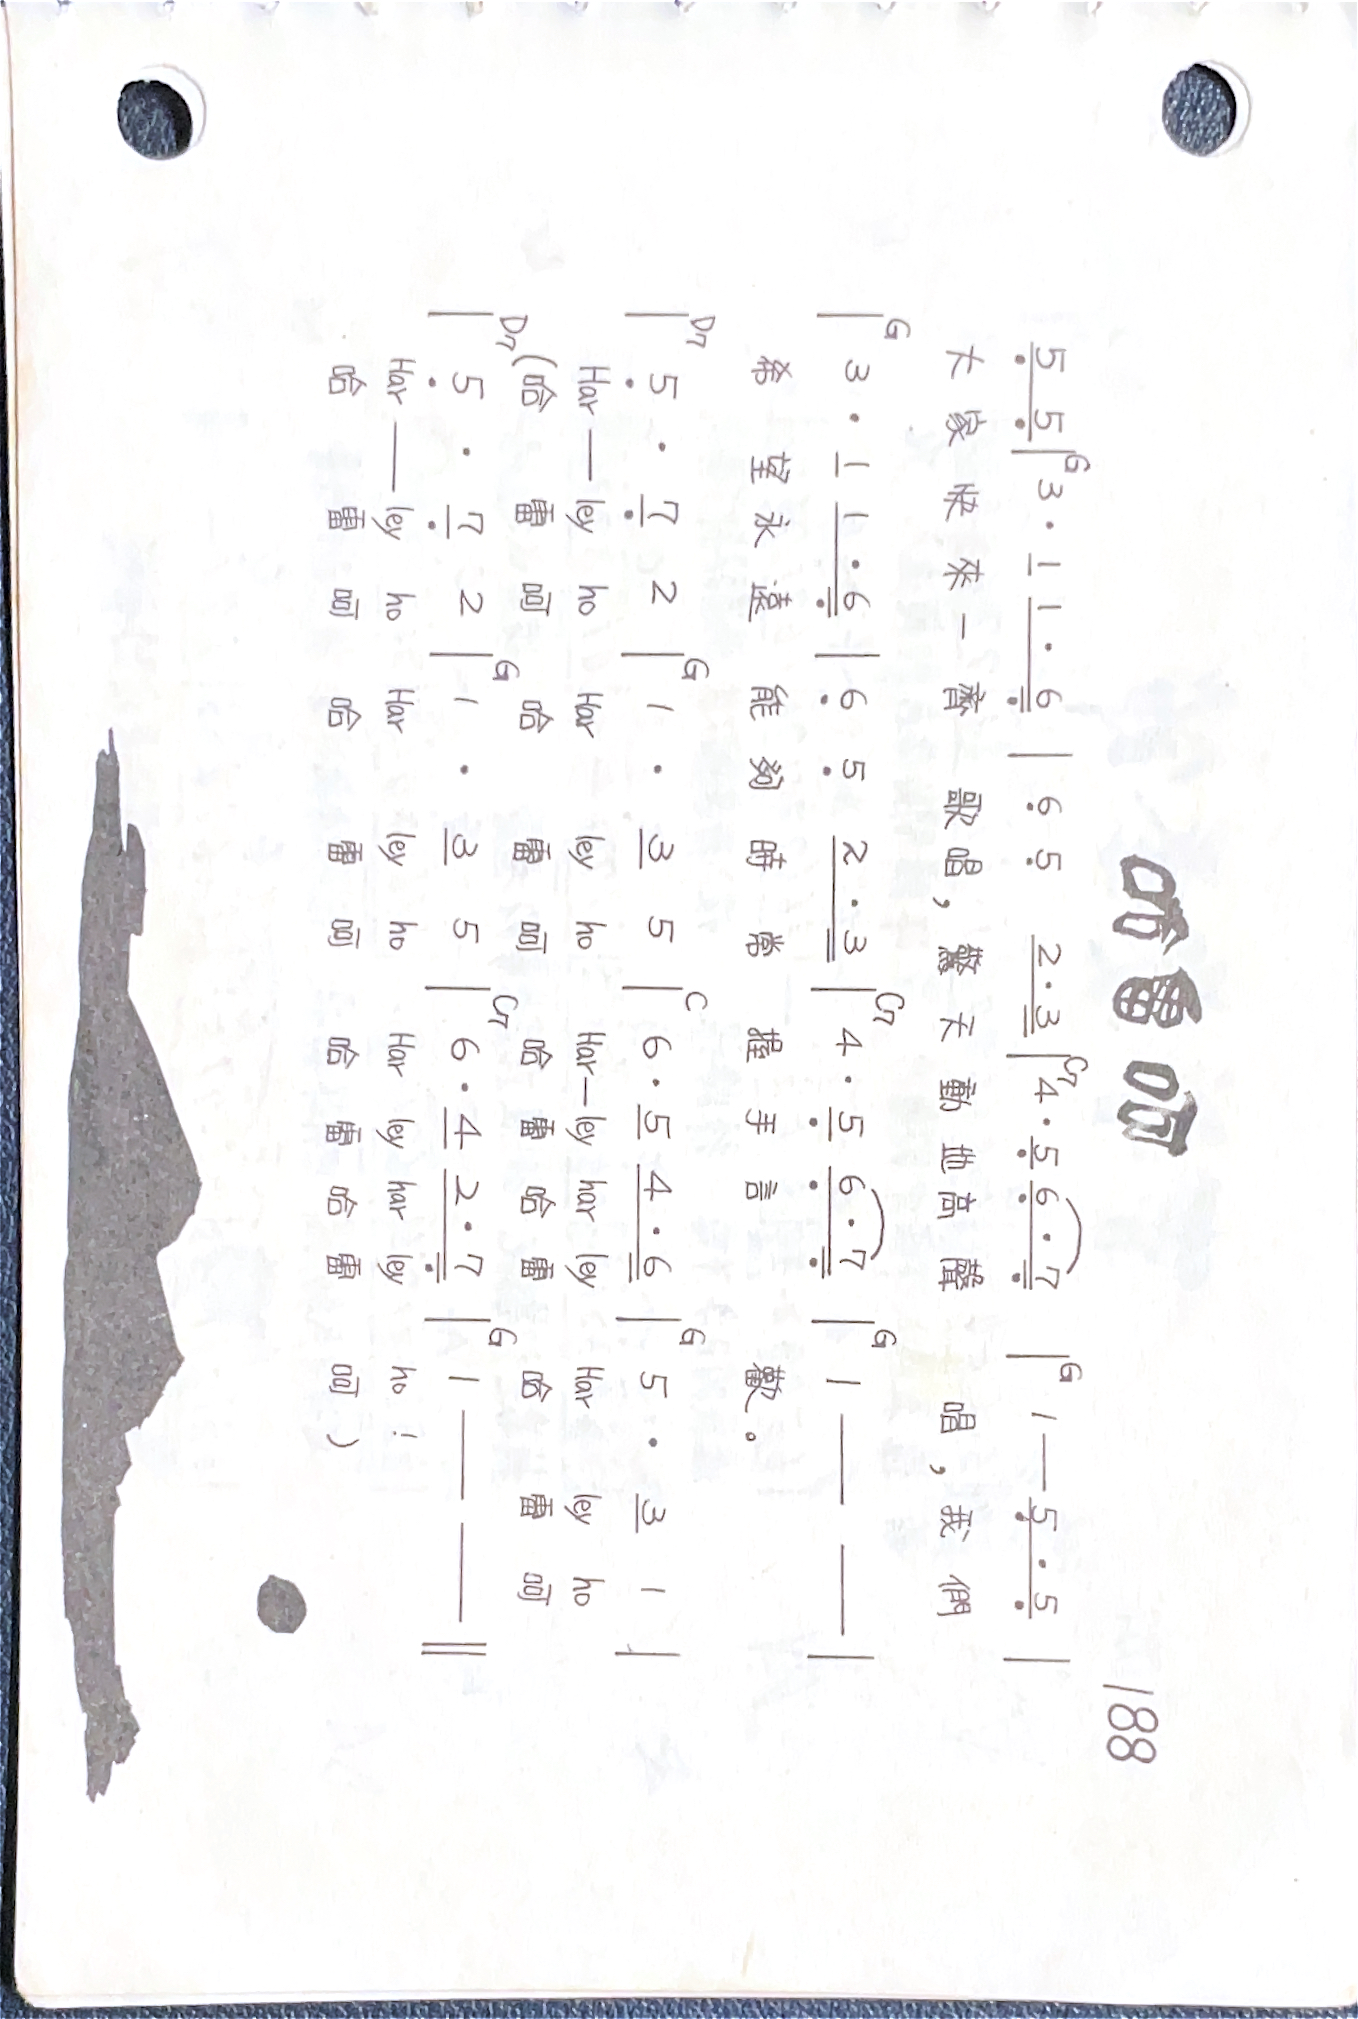 哈雷呵
188
G C7 G
5 5 | 3 · 1 1 · 6 | 6 5 2 · 3 | 4 · 5 6 · 7 | 1 — 5 · 5 |
大家快來一齊 歌唱，驚天動地高聲 唱，我們
G C7 G
| 3 · 1 1 · 6 | 6 5 2 · 3 | 4 · 5 6 · 7 | 1 — — |
希望永遠 能夠時常 握手言 歡。
D7 G C G
| 5 · 7 2 | 1 · 3 5 | 6 · 5 4 · 6 | 5 · 3 1 |
Har — ley ho Har ley ho Har — ley har ley Har ley ho
(哈 雷 呵 哈 雷 呵 哈 雷 哈 雷 哈 雷 呵
D7 G C7 G
| 5 · 7 2 | 1 · 3 5 | 6 · 4 2 · 7 | 1 — — ||
Har — ley ho Har ley ho Har ley har ley ho !
哈 雷 呵 哈 雷 呵 哈 雷 哈 雷 呵 )